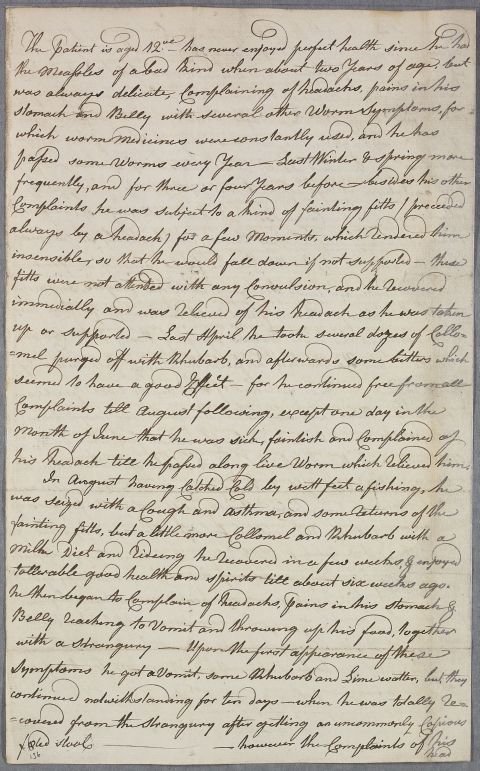 The Patient is aged 12 has never enjoyed perfect health since he had
the Measles of a bad kind when about two Years of age, but
was always delicate, Complaining of headachs, pains in his
stomach and Belly with several other Worm Symptoms, for
which worm Medicines were constantly used, and he has
passed some Worms every Year — Last Winter & spring more
frequently, and for three or four Years before — besides his other
Complaints he was subject to a kind of fainting fitts / preceeded
always by a headach / for a few Moments, which rendered him
insensible, so that he would fall down if not supported — these
fitts were not attended with any Convulsion, and he recovered
immediatly and was relieved of his headach as he was taken
up or supported — Last April he took several dozes of Collo=
=mel purged off with Rhubarb, and afterwards some bitters which
seemed to have a good Effect — for he continued free from all
Complaints till August following, except one day in the
Month of June that he was sick, faintish and Complained of
his headach till he passed a long live Worm which relieved him.
In August having Catched Cold by wett feet a fishing, he
was seized with a Cough and asthma, and some returns of the
fainting fitts, but a little more Collomel and Rhubarb with a
Milk Diet and Rideing he recovered in a few weeks, & enjoyed
tollerable good health and spirits till about six weeks ago.
he then began to Complain of headachs, Pains in his stomach &
Belly reaching to Vomit and throwing up his food, together
with a strangury — Upon the first appearance of these
Symptoms he got a Vomit, some Rhubarb and Lime watter, but they
continued nodwithstanding for ten days — when he was totally re=
=covered from the strangury after getting an uncommonly Copious
stool — however the Complaints of his
head
136